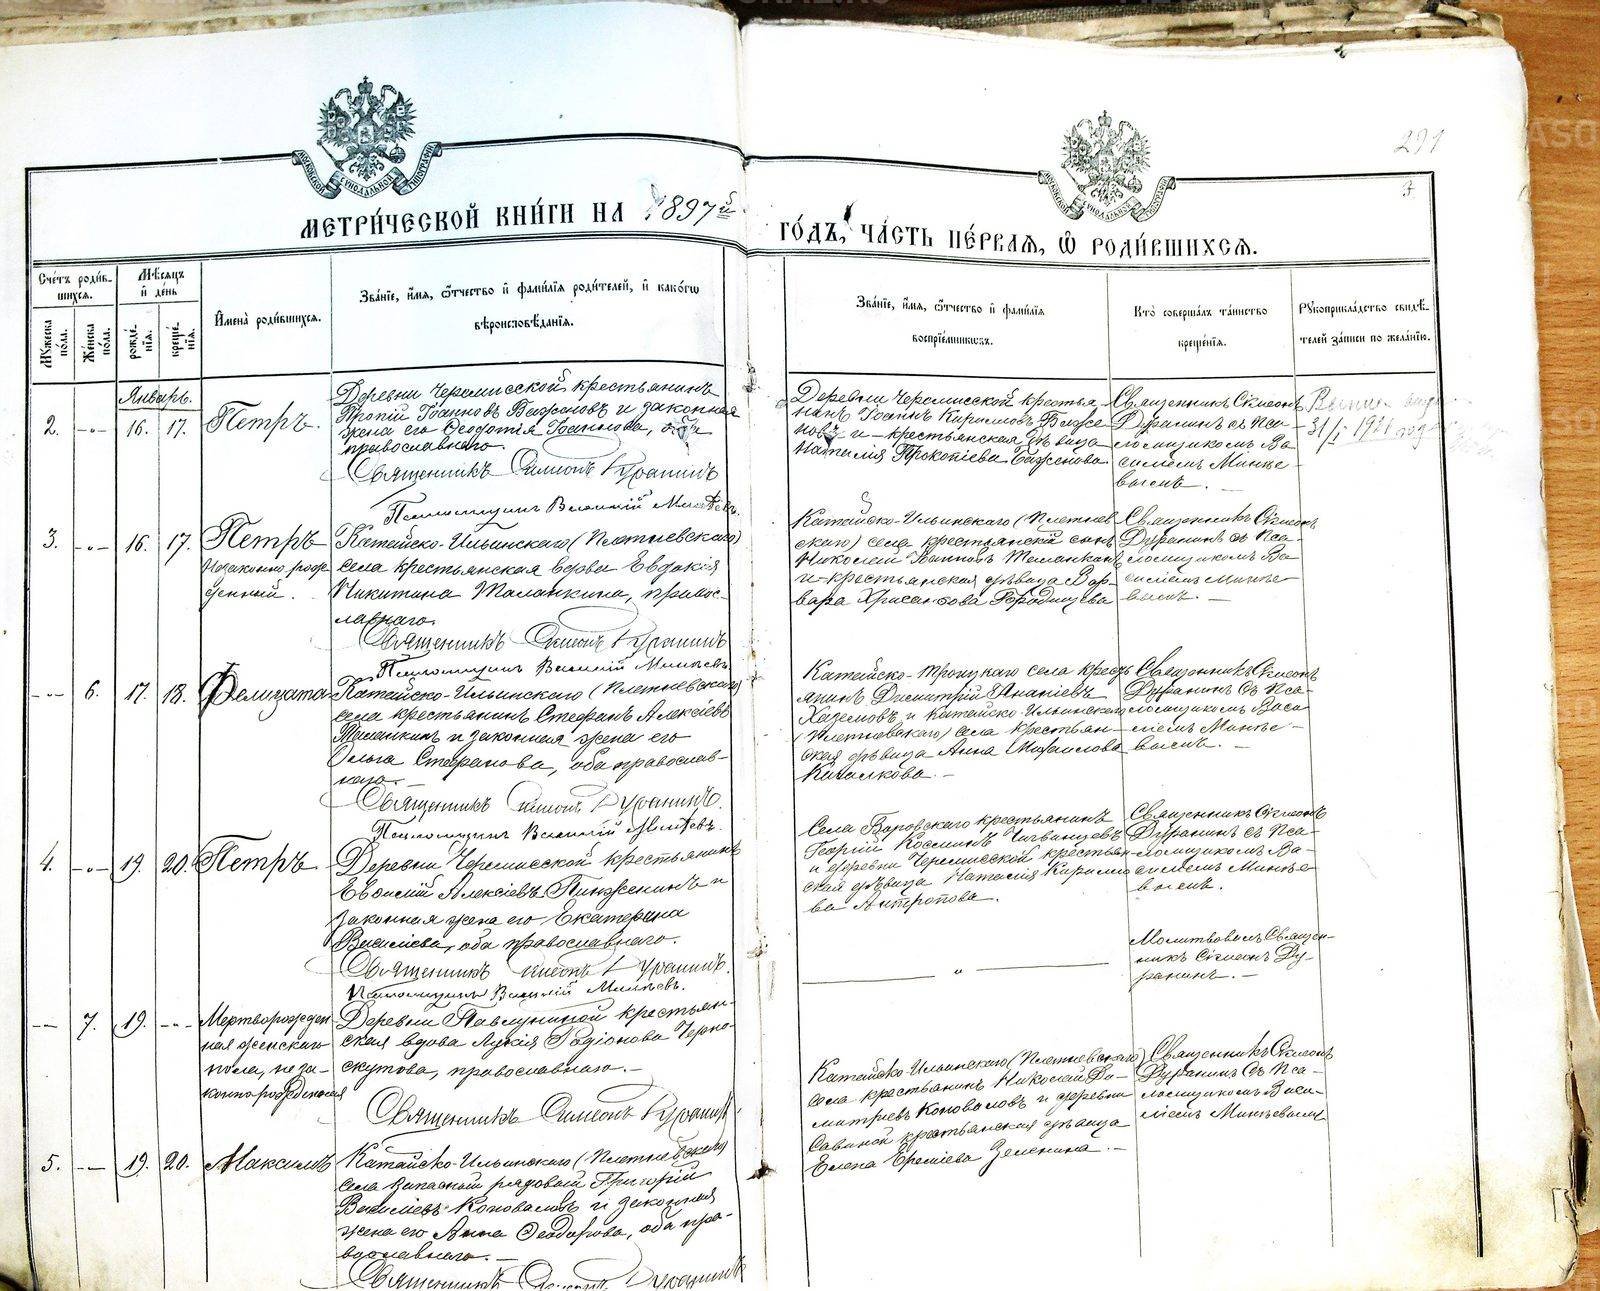 291
3
МОСКОВСКОЙ СѴНОДАЛЬНОЙ ТИПОГРАФІИ
МОСКОВСКОЙ СѴНОДАЛЬНОЙ ТИПОГРАФІИ
МЕТРИ́ЧЕСКОЙ КНИ́ГИ НА 1897й
ГО́ДЪ, ЧА́СТЬ ПЕ́РВАЯ, Ѿ РОДИ́ВШИХСЯ.
Сче́тъ роди́в-
шихся.
Мужеска по́ла.
Же́нска по́ла.
Мѣ́сяцъ
и де́нь
рожде́-
нія.
креще́-
нія.
Имена̀ роди́вшихся.
Зва́ніе, и́мя, ѻ́тчество и фами́лія роди́телей, и како́гѡ
вѣроисповѣ́данія.
Зва́ніе, и́мя, ѻ́тчество и фами́лія
воспріе́мниковъ.
Кто̀ соверша́лъ та́инство
креще́нія.
Рꙋкоприкла́дство свидѣ́-
телей за́писи по жела́нію.
Январь.
2. -"- 16. 17. Петръ.
Деревни Черемисской крестьянинъ
Іоанновъ Баженовъ и законная
жена его Ѳеодотія Іоаннова, оба
православнаго.
Священникъ Симеонъ Дуранинъ
Псаломщикъ Василій Минѣевъ.
Деревни Черемисской крестья-
нинъ Іоаннъ Кириловъ Баже-
новъ и крестьянская дѣвица
Наталія Прокопіева Баженова
Священникъ Симеонъ
Дуранинъ съ пса-
ломщикомъ Ва-
силіемъ Минѣе-
вымъ. -
31/I
3. -"- 16. 17. Петръ
незаконно рож-
денный.
Катайско-Ильинскаго (Плетневскаго)
села крестьянская вдова Евдокія
Никитина Таланкина, правос-
лавнаго.
Священникъ Симеонъ Дуранинъ
Псаломщикъ Василій Минѣевъ
Катайско-Ильинскаго (Плетнев-
скаго) села крестьянскій сынъ
Николай Іоанновъ Таланкинъ
и крестьянская дѣвица Вар-
вара Хрисанфова Городищева
Священникъ Симеонъ
Дуранинъ съ пса-
ломщикомъ Ва-
силіемъ Минѣе-
вымъ. -
--- 6. 17. 18. Фелицата
Катайско-Ильинскаго (Плетневскаго)
села крестьянинъ Стефанъ Алексіевъ
Таланкинъ и законная жена его
Ольга Стефанова, оба православ-
наго.
Священникъ Симеонъ Дуранинъ.
Псаломщикъ Василій Минѣевъ.
Катайско-Троицкаго села кресть-
янинъ Димитрій Ананіевъ
и Катайско-Ильинскаго
(Плетневскаго) села крестьян-
ская дѣвица Анна Михаилова
Священникъ Симеонъ
Дуранинъ съ пса-
ломщикомъ Васи-
ліемъ Минѣе-
вымъ. -
4. -"- 19. 20. Петръ
Деревни Черемисской крестьянинъ
Евѳимій Алексіевъ Пинженинъ и
законная жена его Екатерина
Василіева, оба православнаго.
Священникъ Симеонъ Дуранинъ.
Псаломщикъ Василій Минѣевъ.
Села Боровскаго крестьянинъ
Георгій Косминъ
и деревни Черемисской крестьян-
ская дѣвица Наталія Кирило-
ва Антропова.
Священникъ Симеонъ
Дуранинъ съ пса-
ломщикомъ Ва-
силіемъ Минѣе-
вымъ.
--- 7. 19. -"- Мертворожден-
ная женскаго
пола, неза-
коннорожденная
Деревни Павлуниной крестьян-
ская вдова Лукія Родіонова Черно-
скутова, православнаго. -
Священникъ Симеонъ Дуранинъ
— " —
Молитвовалъ Священ-
никъ Симеонъ Ду-
ранинъ. -
5. -- 19. 20. Максимъ
Катайско-Ильинскаго (Плетневскаго)
села запасный рядовой Григорій
Василіевъ Коноваловъ и законная
жена его Анна Ѳеодорова, оба пра-
вославнаго. -
Священникъ Симеонъ Дуранинъ
Катайско-Ильинскаго (Плетневскаго)
села крестьянинъ Николай Ди-
митріевъ Коноваловъ и деревни
Савиной крестьянская дѣвица
Елена Еремѣева Зеленина. -
Священникъ Симеонъ
Дуранинъ съ пса-
ломщикомъ Васи-
ліемъ Минѣевымъ